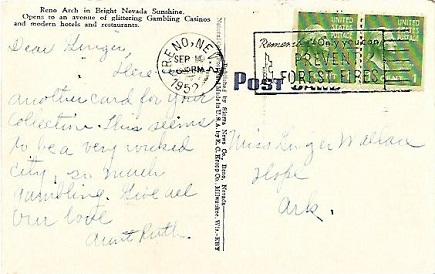 Reno Arch in Bright Nevada Sunshine.
Opens to an avenue of glittering Gambling Casinos
and modern hotels and restaurants.
Dear Ginger,
Here's
another card for your
collection. This seems
to be a very wicked
city, so much
gambling. Give all
our love
Aunt Ruth.
RENO, NEV.
SEP 14
PM
1952
Remember! Only you can
PREVENT
FOREST FIRES
UNITED STATES
POSTAGE
1
UNITED STATES
POSTAGE
1
POST CARD
Distributed by Sierra News Co. Reno, Nevada
Made in U.S.A. by E. C. Kropp Co., Milwaukee, Wis.
Miss Ginger Wallace
Hope
Ark.